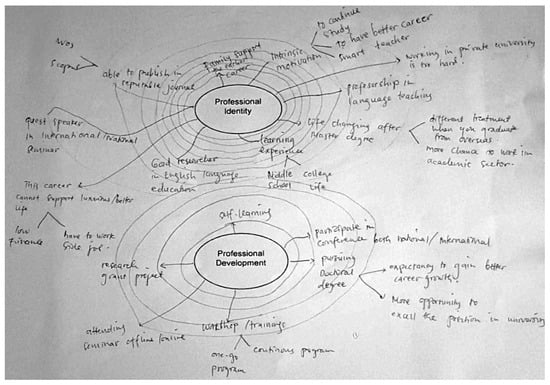 to continue
study
WOS
Scopus
Family support
the current
career
Intrinsic
motivation
to have better career
smart teacher
able to publish in
reputable journal
Working in private university
is too hard.
Professional
Identity
professorship in
language teaching
guest speaker
in International/National
Seminar
Life changing after
Master degree
different treatment
when you graduate
from overseas
More chance to work in
academic sector.
learning
experience
Good researcher
in English language
education
Middle college
school life
This career
cannot support luxurious/better
life
low
Finance
have to work
side job.
self-learning
participate in
conference both national/international
Professional
Development
research
grant project
pursuing
Doctoral
degree
expectancy to gain better
career growth.
More opportunity to
excell the position in university
attending
seminar offline/online
workshop/trainings
one-go
program
continous program